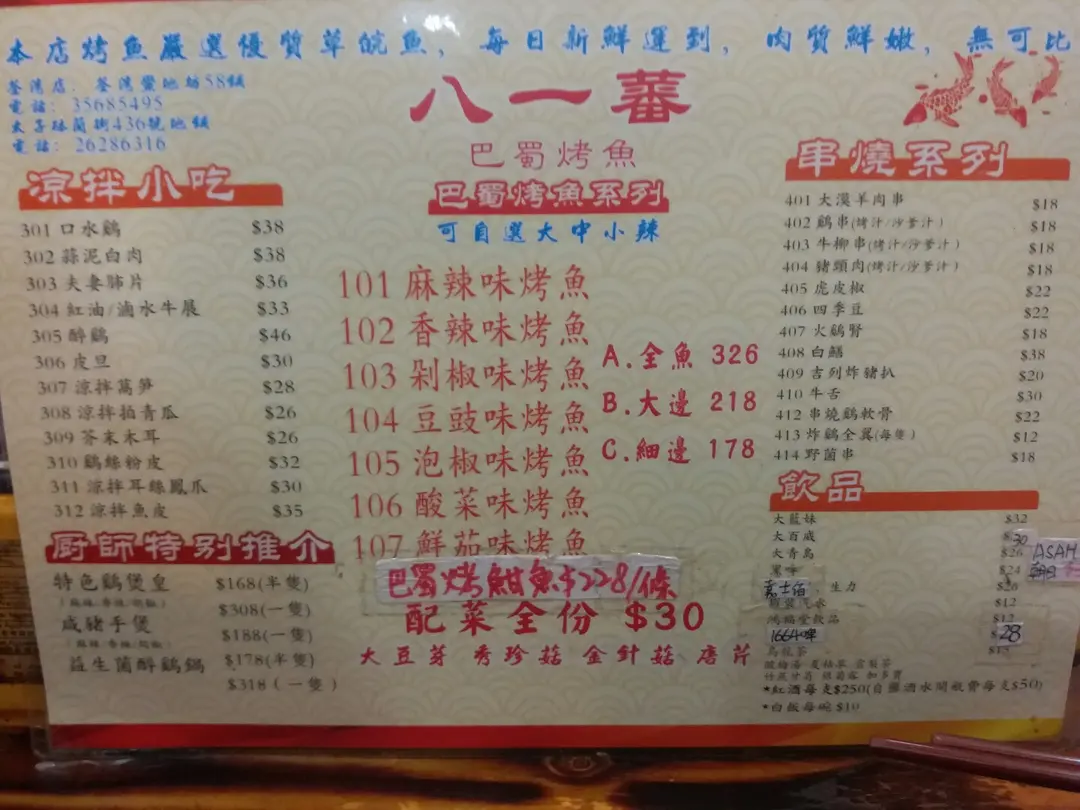 本店烤魚嚴選優質草皖魚，每日新鮮運到，肉質鮮嫩，無可比
荃灣店：荃灣蟹地坊58舖
電話：35685495
太子砵蘭街436號地舖
電話：26286316
八一蕃
巴蜀烤魚
巴蜀烤魚系列
可自選大中小辣
涼拌小吃
301 口水鷄 $38
302 蒜泥白肉 $38
303 夫妻肺片 $36
304 紅油/滷水牛展 $33
305 醉鷄 $46
306 皮旦 $30
307 涼拌萵笋 $28
308 涼拌拍青瓜 $26
309 芥末木耳 $26
310 鷄絲粉皮 $32
311 涼拌耳絲鳳爪 $30
312 涼拌魚皮 $35
厨師特别推介
特色鷄煲皇 $168(半隻)
$308(一隻)
咸豬手煲 $188(一隻)
益生菌醉鷄鍋 $178(半隻)
$318(一隻)
101 麻辣味烤魚
102 香辣味烤魚
103 剁椒味烤魚
104 豆豉味烤魚
105 泡椒味烤魚
106 酸菜味烤魚
107 鮮茄味烤魚
A.全魚 326
B.大邊 218
C.細邊 178
巴蜀烤鮒魚$228/條
配菜全份 $30
大豆芽 秀珍菇 金針菇 唐芹
串燒系列
401 大漠羊肉串 $18
402 鷄串(烤汁/沙爹汁) $18
403 牛柳串(烤汁/沙爹汁) $18
404 豬頸肉(烤汁/沙爹汁) $18
405 虎皮椒 $22
406 四季豆 $22
407 火鷄腎 $18
408 白鱔 $38
409 吉列炸豬扒 $20
410 牛舌 $30
412 串燒鷄軟骨 $22
413 炸鷄全翼(每隻) $12
414 野菌串 $18
飲品
大藍妹 $32
大百威 30
大青島 $26
黑啤 $24
ASAHI
嘉士伯，生力 $26
汽水 $12
鴻福堂飲品 $12
1664啤 28
烏龍茶 $15
*紅酒每支$250(自攜酒水開瓶費每支$50)
*白飯每碗$10